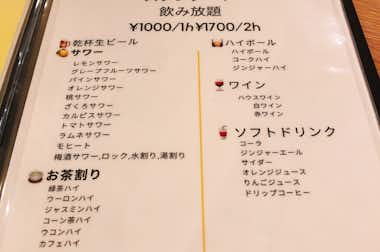 飲み放題
¥1000/1h¥1700/2h
乾杯生ビール
サワー
レモンサワー
グレープフルーツサワー
パインサワー
オレンジサワー
桃サワー
ざくろサワー
カルピスサワー
トマトサワー
ラムネサワー
モヒート
梅酒サワー,ロック,水割り,湯割り
お茶割り
緑茶ハイ
ウーロンハイ
ジャスミンハイ
コーン茶ハイ
ウコンハイ
カフェハイ
ハイボール
ハイボール
コークハイ
ジンジャーハイ
ワイン
ハウスワイン
白ワイン
赤ワイン
ソフトドリンク
コーラ
ジンジャーエール
サイダー
オレンジジュース
りんごジュース
ドリップコーヒー